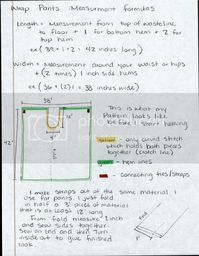 Wrap Pants Measurement formulas
Length = Measurement from top of waistline
to floor + 1 for bottom hem + 2 for
top hem
ex (39 + 1 + 2 = 42 inches long)
Width = Measurement around your waist or hips
+ (2 times) 1 inch side hems
ex (36 + (2)1 = 38 inches wide)
38"
42"
This is what my
pattern looks like
before I start hemming
yellow - only curved stitch
which holds both pieces
together (crotch line)
green - hem lines
- connecting ties/straps
I make straps out of the same material I
use for pants. I just fold
in half a 3" piece of material
that is at least 12" long.
From fold measure 1 inch
and sew sides together.
Sew one end shut. Turn
inside out to give finished
look.
1"